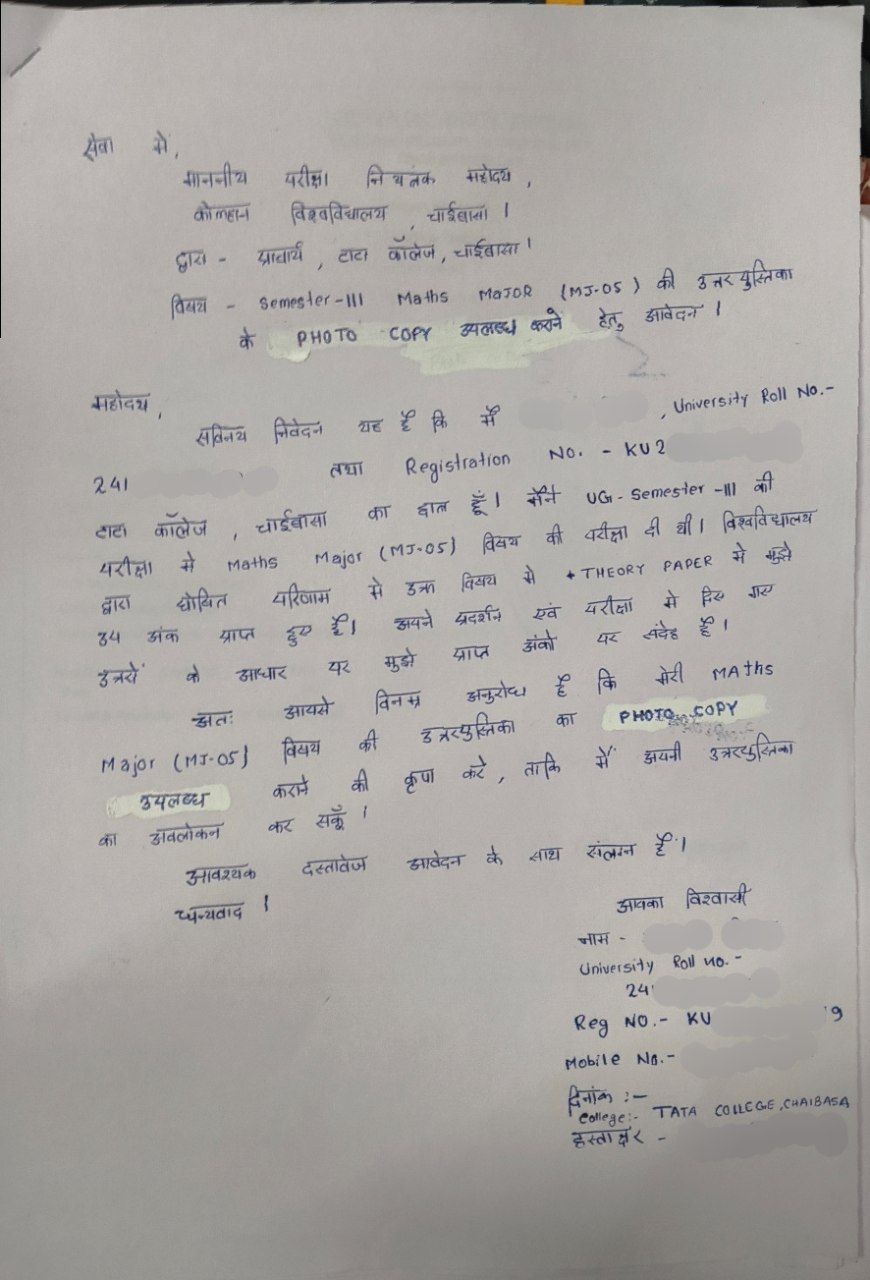 सेवा में,
माननीय परीक्षा नियंत्रक महोदय,
कोल्हान विश्वविद्यालय, चाईबासा।
द्वारा - प्राचार्य, टाटा कॉलेज, चाईबासा।
विषय - Semester-III Maths MAJOR (MJ-05) की उत्तरपुस्तिका
के PHOTO COPY उपलब्ध कराने हेतु आवेदन।
महोदय,
सविनय निवेदन यह है कि मैं , University Roll No.-
241 तथा Registration No. - KU2
टाटा कॉलेज, चाईबासा का छात्र हूँ। मैंने UG-Semester-III की
परीक्षा में Maths Major (MJ-05) विषय की परीक्षा दी थी। विश्वविद्यालय
द्वारा घोषित परिणाम में उक्त विषय में THEORY PAPER में मुझे
34 अंक प्राप्त हुए हैं। अपने प्रदर्शन एवं परीक्षा में दिए गए
उत्तरों के आधार पर मुझे प्राप्त अंकों पर संदेह है।
अतः आपसे विनम्र अनुरोध है कि मेरी MAths
Major (MJ-05) विषय की उत्तरपुस्तिका का PHOTO COPY
उपलब्ध कराने की कृपा करे, ताकि मैं अपनी उत्तरपुस्तिका
का अवलोकन कर सकूँ।
आवश्यक दस्तावेज आवेदन के साथ संलग्न है।
धन्यवाद।
आपका विश्वासी
नाम -
University Roll no. -
24
Reg NO.- KU 9
Mobile No.-
दिनांक :-
College:- TATA COLLEGE, CHAIBASA
हस्ताक्षर -